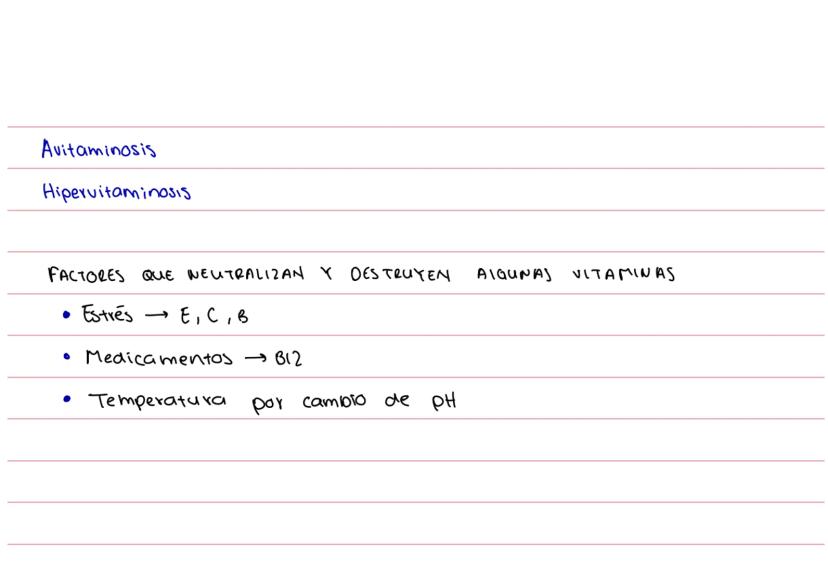 Avitaminosis
Hipervitaminosis
FACTORES QUE NEUTRALIZAN Y DESTRUYEN ALGUNAS VITAMINAS
• Estrés → E, C, B
• Medicamentos → B12
• Temperatura por cambio de pH